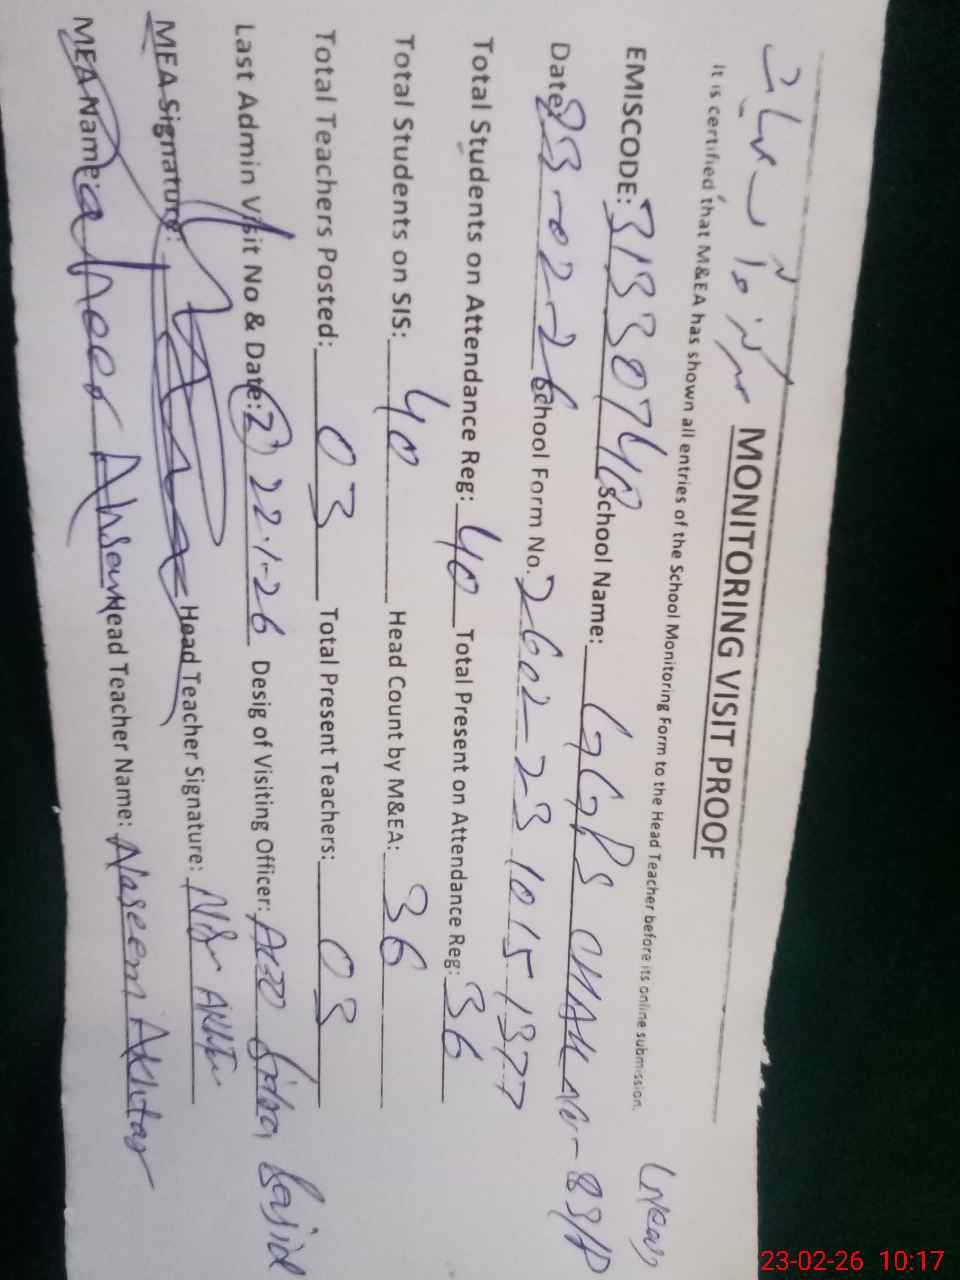 MONITORING VISIT PROOF
It is certified that M&EA has shown all entries of the School Monitoring Form to the Head Teacher before its online submission.
EMISCODE: 31330740 School Name: GGPS CHAK NO- 83/P
Date: 23-02-26 School Form No. 2602-23 1015 1377
Total Students on Attendance Reg: 40 Total Present on Attendance Reg: 36
Total Students on SIS: 40 Head Count by M&EA: 36
Total Teachers Posted: 03 Total Present Teachers: 03
Last Admin Visit No & Date: 2 22-1-26 Desig of Visiting Officer: AEO Sidra Sajid
MEA Signature: Head Teacher Signature:
MEA Name: Ahsan Head Teacher Name: Naseem Akhtar
23-02-26 10:17